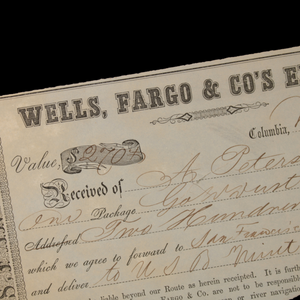 WELLS, FARGO & CO'S E
Columbia,
Value, $270
Received of A. Peters
one Package Gov
Addressed Two Hundred
which we agree to forward to San Francisco
and deliver to U S B Mint
liable beyond our Route as herein receipted. It is further
Fargo & Co. are not to be responsible
or river navigation